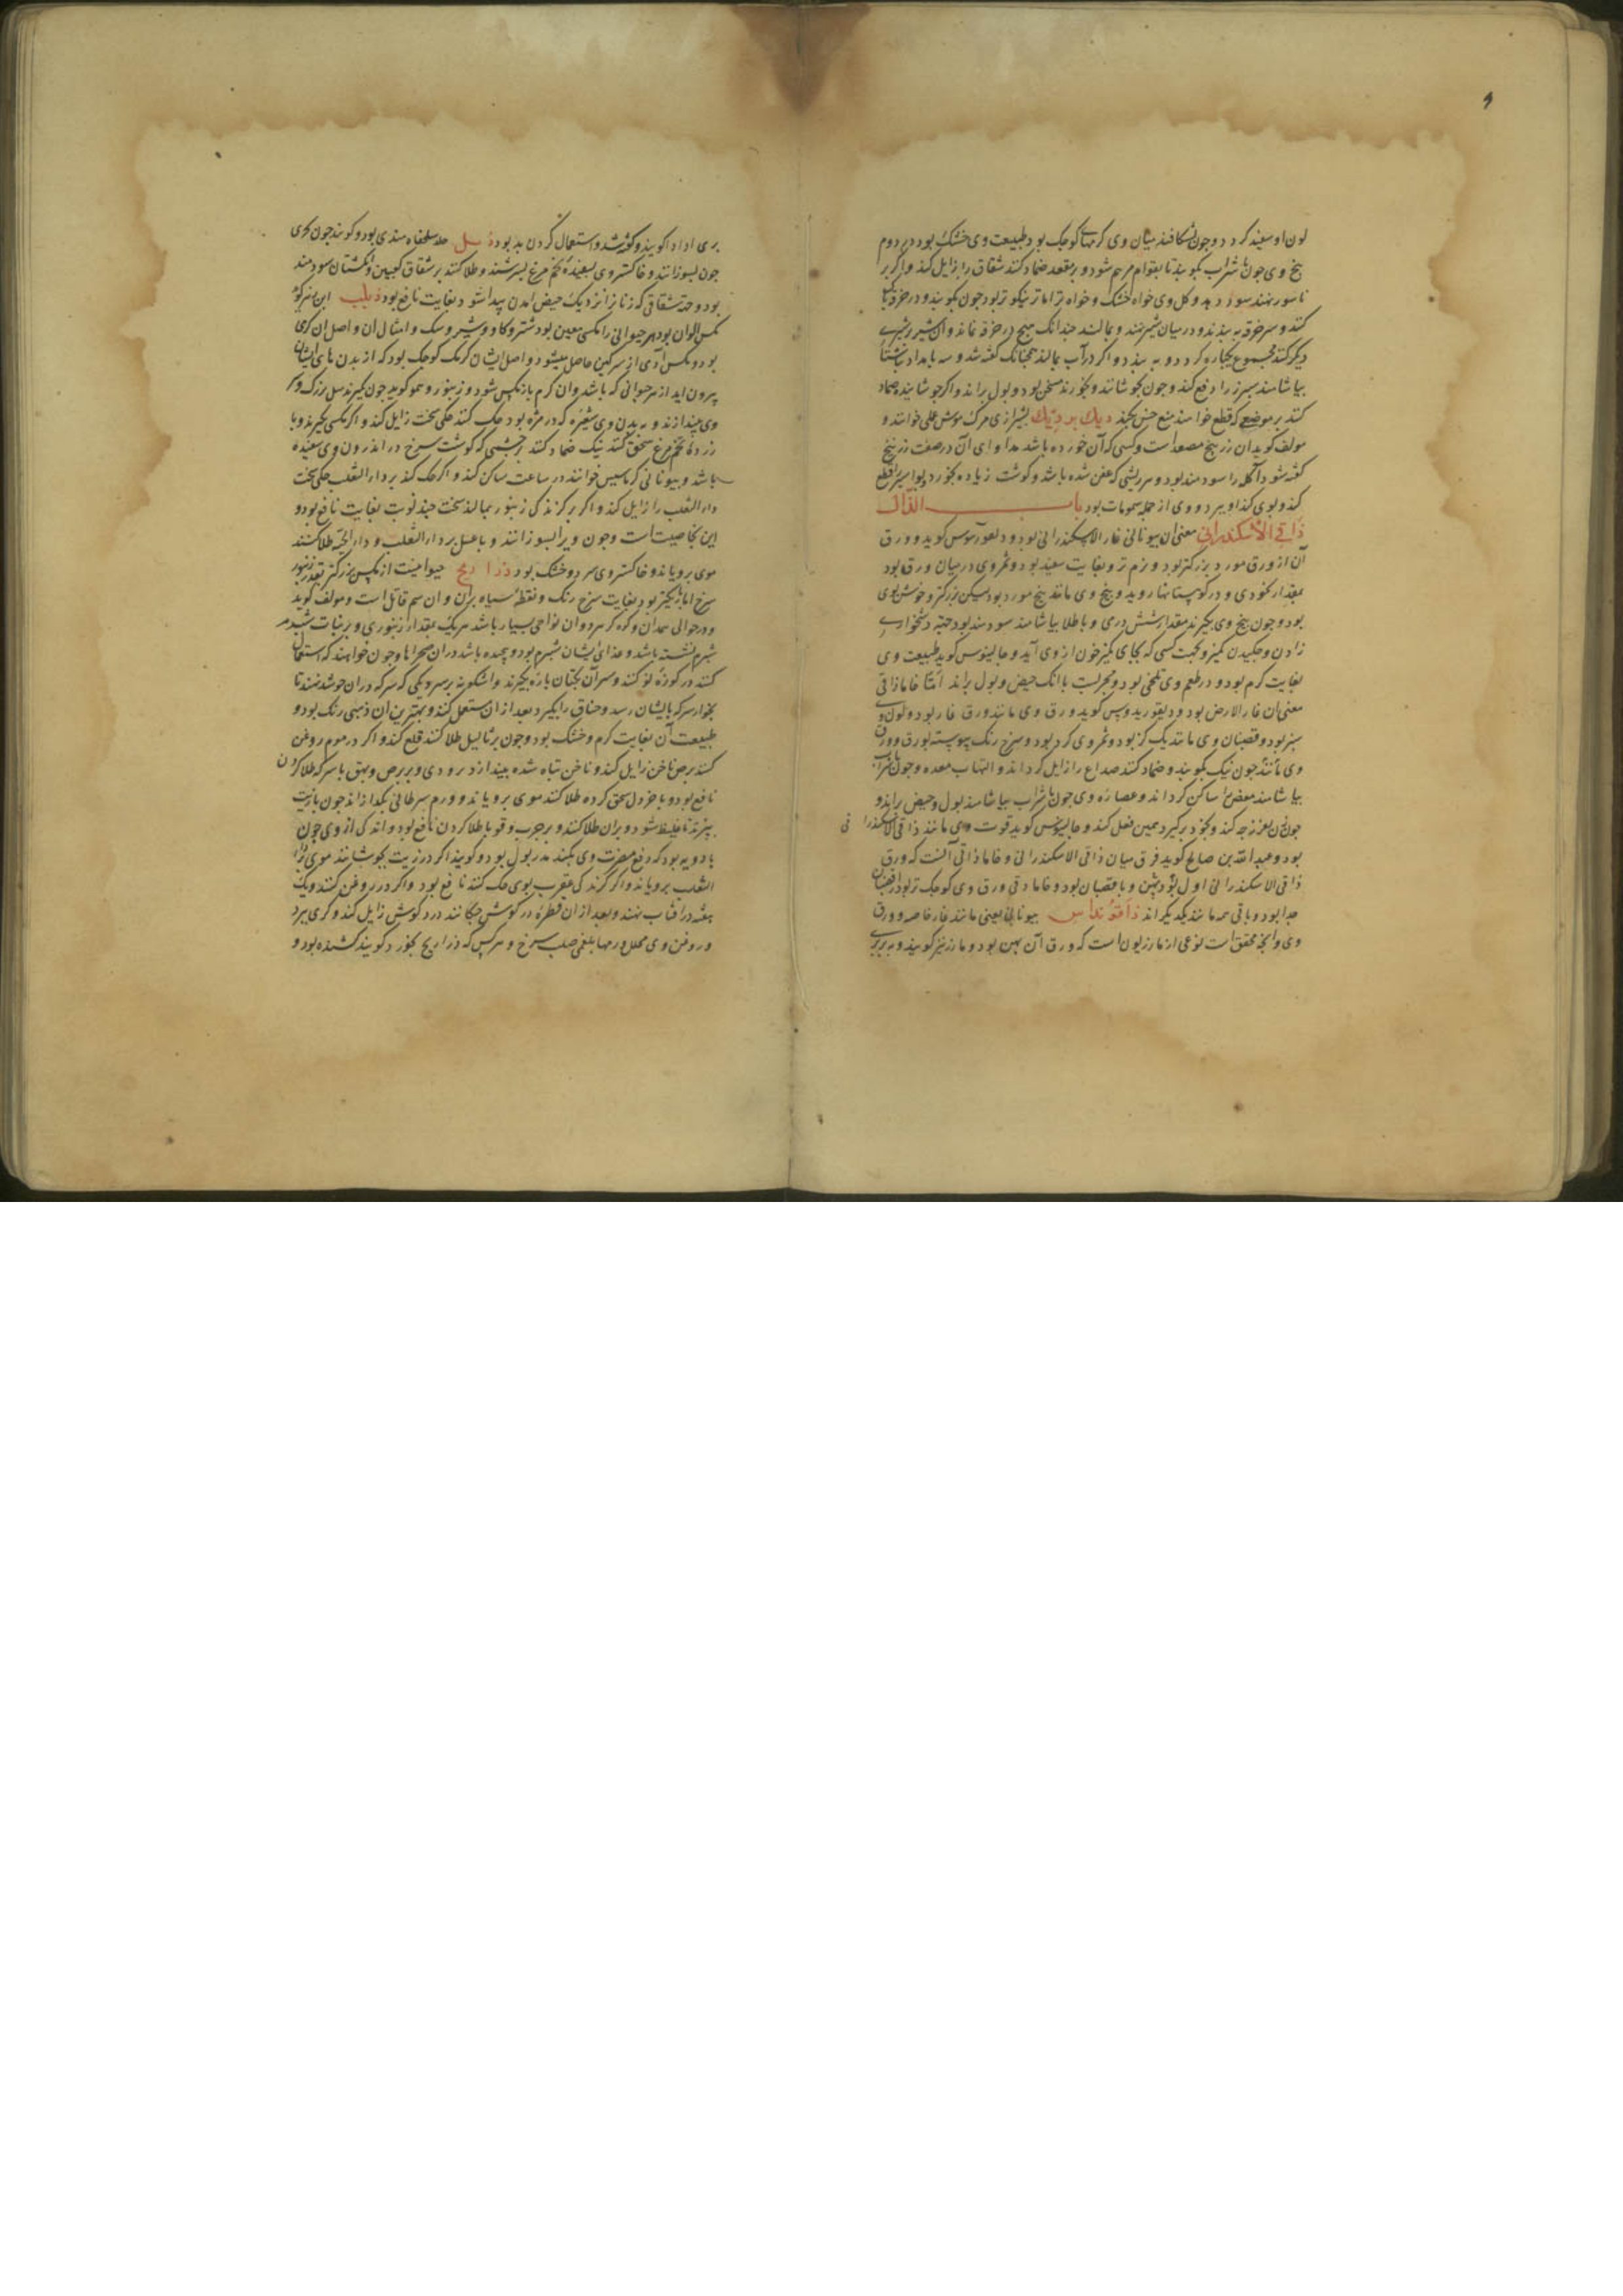 لون او سفید کردد و چون بشکافند میان وی کرمهای کوچک بود و طبیعت وی خشک بود در دوم
بیخ وی چون با شراب بکوبند تا بقوام مرهم شود و بر مقعد ضماد کنند شقاق را زایل کند و اگر بر
ناسور نهند سود دهد و کل وی خواه خشک و خواه تر اما تر نیکوتر بود چون بکوبند و در خرقه
کنند و سر خرقه به بندند و در میان شیر نهند و بمالند چندانک هیچ در خرقه نماند و آن شیر بر شیری
دیگر کنند مجموع یکباره کردد و به بندد و اگر در آب بمالند همچنانک گفته شد و سه بامداد بناشتا
بیاشامند سپرز را دفع کند و چون بجوشانند و بخورند مسخن بود و بول براند و اگر جوشانیده ضماد
کنند بر موضعی که قطع خواهند منع حس بکند دیک بر دیک بشیرازی مرک موش عملی خوانند و
مولف کوید ان زرنیخ مصعد است و کسی که آن خورده باشد مداوای آن در صفت زرنیخ
گفته شود آکله را سودمند بود و هر ریشی که عفن شده باشد و گوشت زیاده بخورد و بواسیر را قطع
کند و بوی کند او ببرد و وی از جمله سمومات بود باب الذال
ذاقی الاسکندرانی معنی ان بیونانی غار الاسکندرانی بود و دیعورموس کوید و ورق
آن از ورق مورد بزرکتر بود و نرم تر و بغایت سفید بود و ثمر وی در میان ورق بود
بمقدار نخودی و در کوهستانها روید و بیخ وی مانند بیخ مورد بود لیکن بزرکتر و خوش بوی
بود و چون بیخ وی بکیرند مقدار شش درمی و با طلا بیاشامند سودمند بود جهته دشخواری
زادن و چکیدن کمیز و جهت کسی که بجای کمیز خون از وی آید و جالینوس کوید طبیعت وی
بغایت کرم بود و در طعم وی تلخی بود و مجربست با آنک حیض و بول براند امّا خاماذاقی
معنی ان غار الارض بود و دیقوریدوس کوید ورق وی مانند ورق غار بود و لون و
سبز بود و قضبان وی مانند یک کز بود و ثمر وی کرد بود و سرخ رنک پیوسته بورق و ورق
وی مانند چون نیک بکوبند و ضماد کنند صداع را زایل کرداند و التهاب معده و چون با شراب
بیاشامند مغص را ساکن کرداند و عصاره وی چون با شراب بیاشامند بول و حیض براند و
چون زن فرزجه کند و بخود برکیرد همین فعل کند و جالینوس کوید قوت وی مانند ذاقی الاسکندرانی
بود و عبدالله بن صالح کوید فرق میان ذاقی الاسکندرانی و خاماذاقی آنست که ورق
ذاقی الاسکندرانی اول بود پهن و با قضبان بود و خاماذقی ورق وی کوچک تر بود از قضبان
جدا بود و باقی همه مانند یکدیکر اند ذاقنویداس بیونانی یعنی مانند غار خاصه و ورق
وی و آنچه محقق است نوعی از مازریون است که ورق آن پهن بود و مازر نیز کویند و به بربری
بری ادادا کویند و گفته شد و استعمال کردن بد بود ذبل جلد سلحفاه هندی بود و کویند چون بحری
چون بسوزانند و خاکستر وی بسفیده تخم مرغ بسرشند و طلا کنند بر شقاق کعبین و انکشتان سودمند
بود و جهة شقاقی که زنانرا نزدیک حیض آمدن پیدا شود بغایت نافع بود ذباب ابن زهر کوید
مکس الوان بود و هر حیوانی را مکسی معین بود شتر و کاو و شیر و سک و امثال آن و اصل ان کرمی
بود و مکس آدمی از سرکین حاصل میشود و اصل ایشان کرمک کوچک بود که از بدن های ایشان
بیرون اید از هر حیوانی که باشد و ان کرم باز مکس شود و زنبور و همو کوید چون بکیرند مکس بزرک و سر
وی بیندازند و به بدن وی شعیره که در مژه بود حک کنند حکی سخت زایل کند و اگر مکسی بکیرند و با
زرده تخم مرغ سحق کنند نیک ضماد کنند بر چشمی که گوشت سرخ در اندرون وی سفیده
باشد و بیونانی کرماسیس خوانند در ساعت ساکن کند و اگر حک کند بر داءالثعلب حکی سخت
داءالثعلب را زایل کند و اگر بر کزندکی زنبور بمالند سخت چند نوبت بغایت نافع بود و
این بخاصیت است و چون ویرا بسوزانند و با عسل بر داءالثعلب و داءالحیة طلا کنند
موی برویاند و خاکستر وی سرد و خشک بود ذراریح حیوانیست از مکس بزرکتر بقدر زنبور
سرخ اما باریکتر بود بغایت سرخ رنک و نقطه سیاه بران و ان سم قاتل است و مولف کوید
در حوالی همدان و کوه کر هرد و ان نواحی بسیار باشد هر یک بمقدار زنبوری و بر نبات شبرم
شبرم نشسته باشد و غذای ایشان شبرم بود و جمله باشد در ان صحراها و چون خواهند که استعمال
کنند در کوزهٔ نو کنند و سر آن بکتان پاره بکیرند و اشکونه بر سر دیکی که سرکه در ان جوشد نهند تا
بخار سرکه بایشان رسد و خناق را بکیرد بعد از ان مستعمل کنند و بهترین ان ذهبی رنک بود و
طبیعت آن بغایت کرم و خشک بود و چون بر ثالیل طلا کنند قلع کند و اگر در موم روغن
کنند برص ناخن زایل کند و ناخن تباه شده بیندازد بزودی و بر برص و بهق با سرکه طلا کردن
نافع بود و با خردل سحق کرده طلا کنند موی برویاند و ورم سرطانی بکدازاند چون با زیت
بپزند تا غلیظ شود و بران طلا کنند و بر جرب و قوبا طلا کردن نافع بود و اندکی از وی چون
با دویه بود که دفع مضرت وی بکند مدر بول بود و کویند اگر در زیت بجوشانند موی داء
الثعلب برویاند و اگر کزندکی عقرب بوی حک کنند نافع بود و اگر در روغن کنند و یک
هفته در آفتاب نهند و بعد از ان قطره در کوش چکانند درد کوش زایل کند و کری ببرد
و روغن وی محلل ورمها بلغمی صلب سرخ و هر کس که ذراریح بخورد کویند کشنده بود و